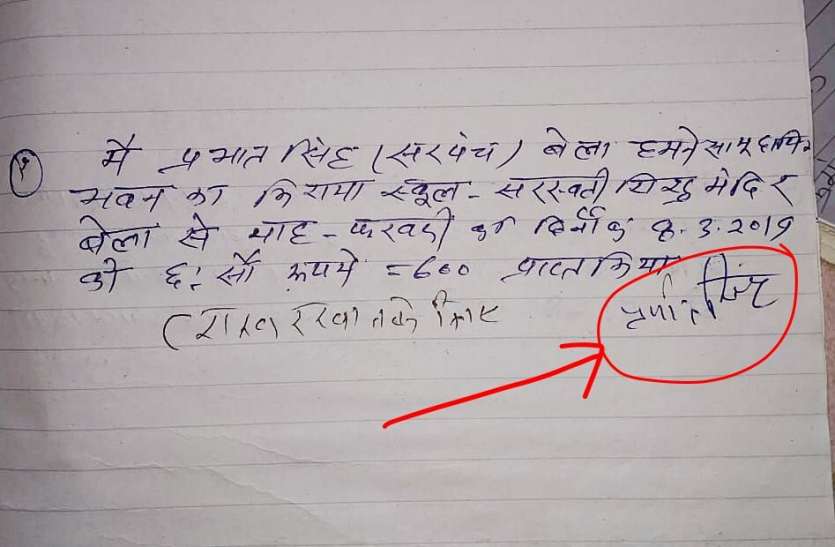 १
मै प्रभात सिंह (सरपंच) बेला हमने सामुदायिक
भवन का किराया स्कूल - सरस्वती शिशु मंदिर
बेला से माह - फरवरी का दिनाँक 8.3.2019
को छ: सौ रूपये = 600 प्राप्त किया
प्रभात सिंह